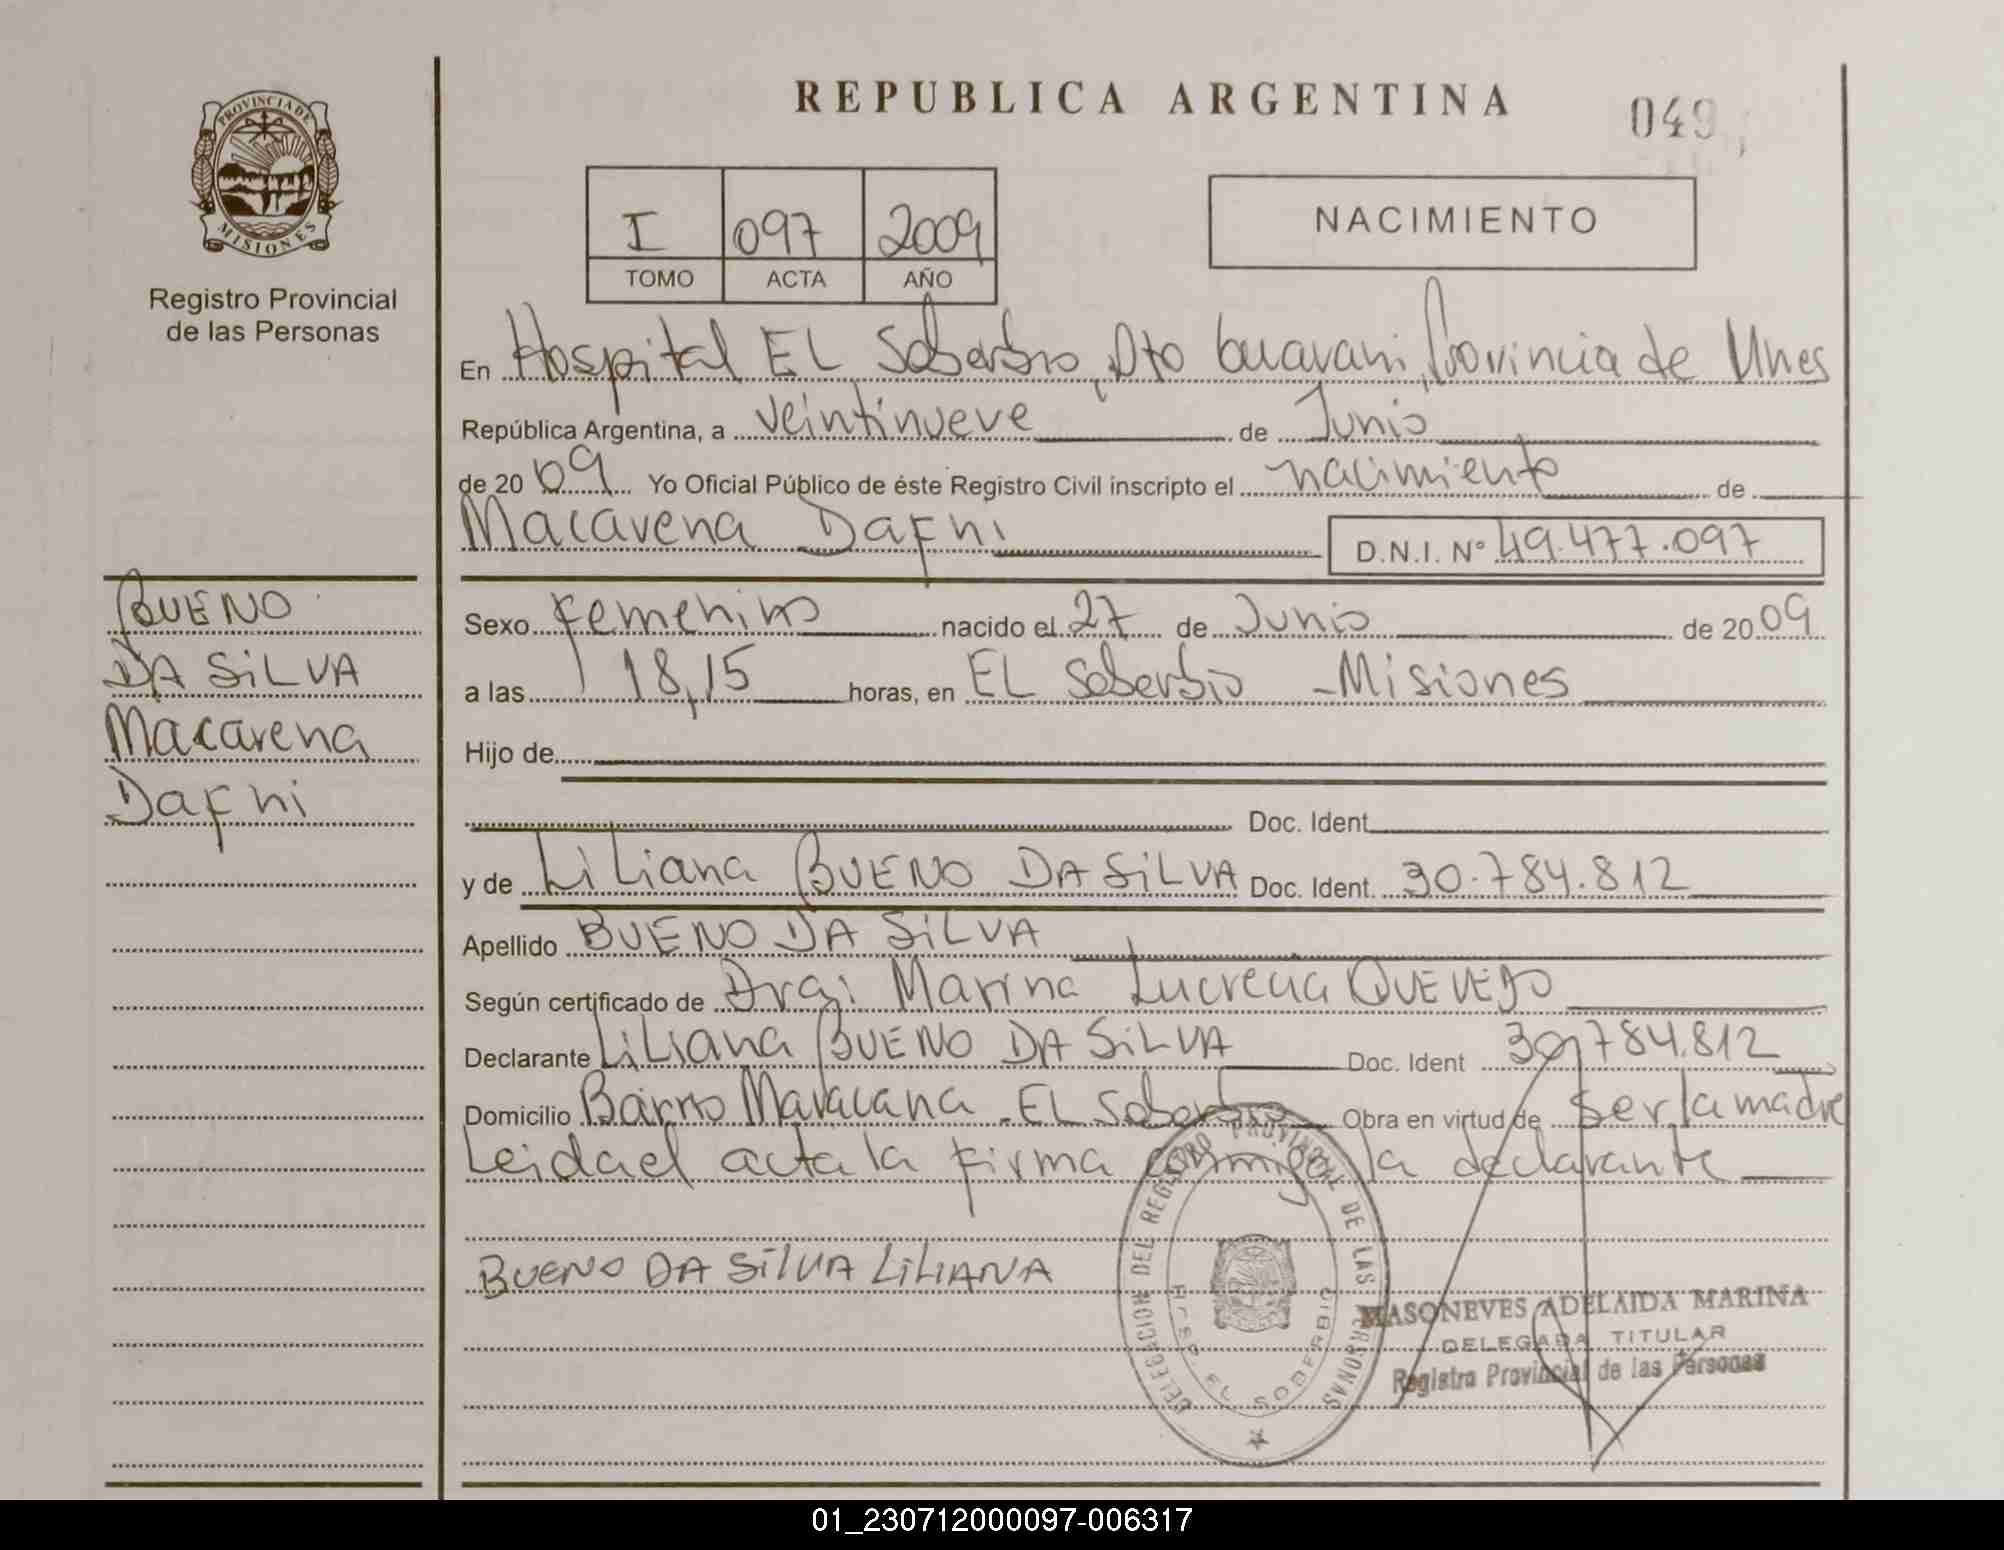 REPUBLICA ARGENTINA
049
PROVINCIA DE
MISIONES
Registro Provincial
de las Personas
I 097 2009
TOMO ACTA AÑO
NACIMIENTO
En Hospital EL Soberbio, Dto Guarani, Provincia de Mnes
República Argentina, a veintinueve de Junio
de 20 09 Yo Oficial Público de éste Registro Civil inscripto el nacimiento de
Macarena Dafni D.N.I. Nº 49.477.097
BUENO
DA SiLVA
Macarena
Dafni
Sexo femenino nacido el 27 de Junio de 20 09
a las 18,15 horas, en EL Soberbio - Misiones
Hijo de
Doc. Ident
y de Liliana BUENO DA SiLVA Doc. Ident. 30.784.812
Apellido BUENO DA SiLVA
Según certificado de Dra: Marina Lucrecia QUEVEDO
Declarante Liliana BUENO DA SiLVA Doc. Ident 30.784.812
Domicilio Barrio Maracana - EL Soberbio Obra en virtud de ser la madre
Leida el acta la firma conmigo la declarante
BUENO DA SiLVA LiLIANA
DELEGACION DEL REGISTRO PROVINCIAL DE LAS PERSONAS
HOSP. EL SOBERBIO
MASONEVES ADELAIDA MARINA
DELEGADA TITULAR
Registro Provincial de las Personas
01_230712000097-006317